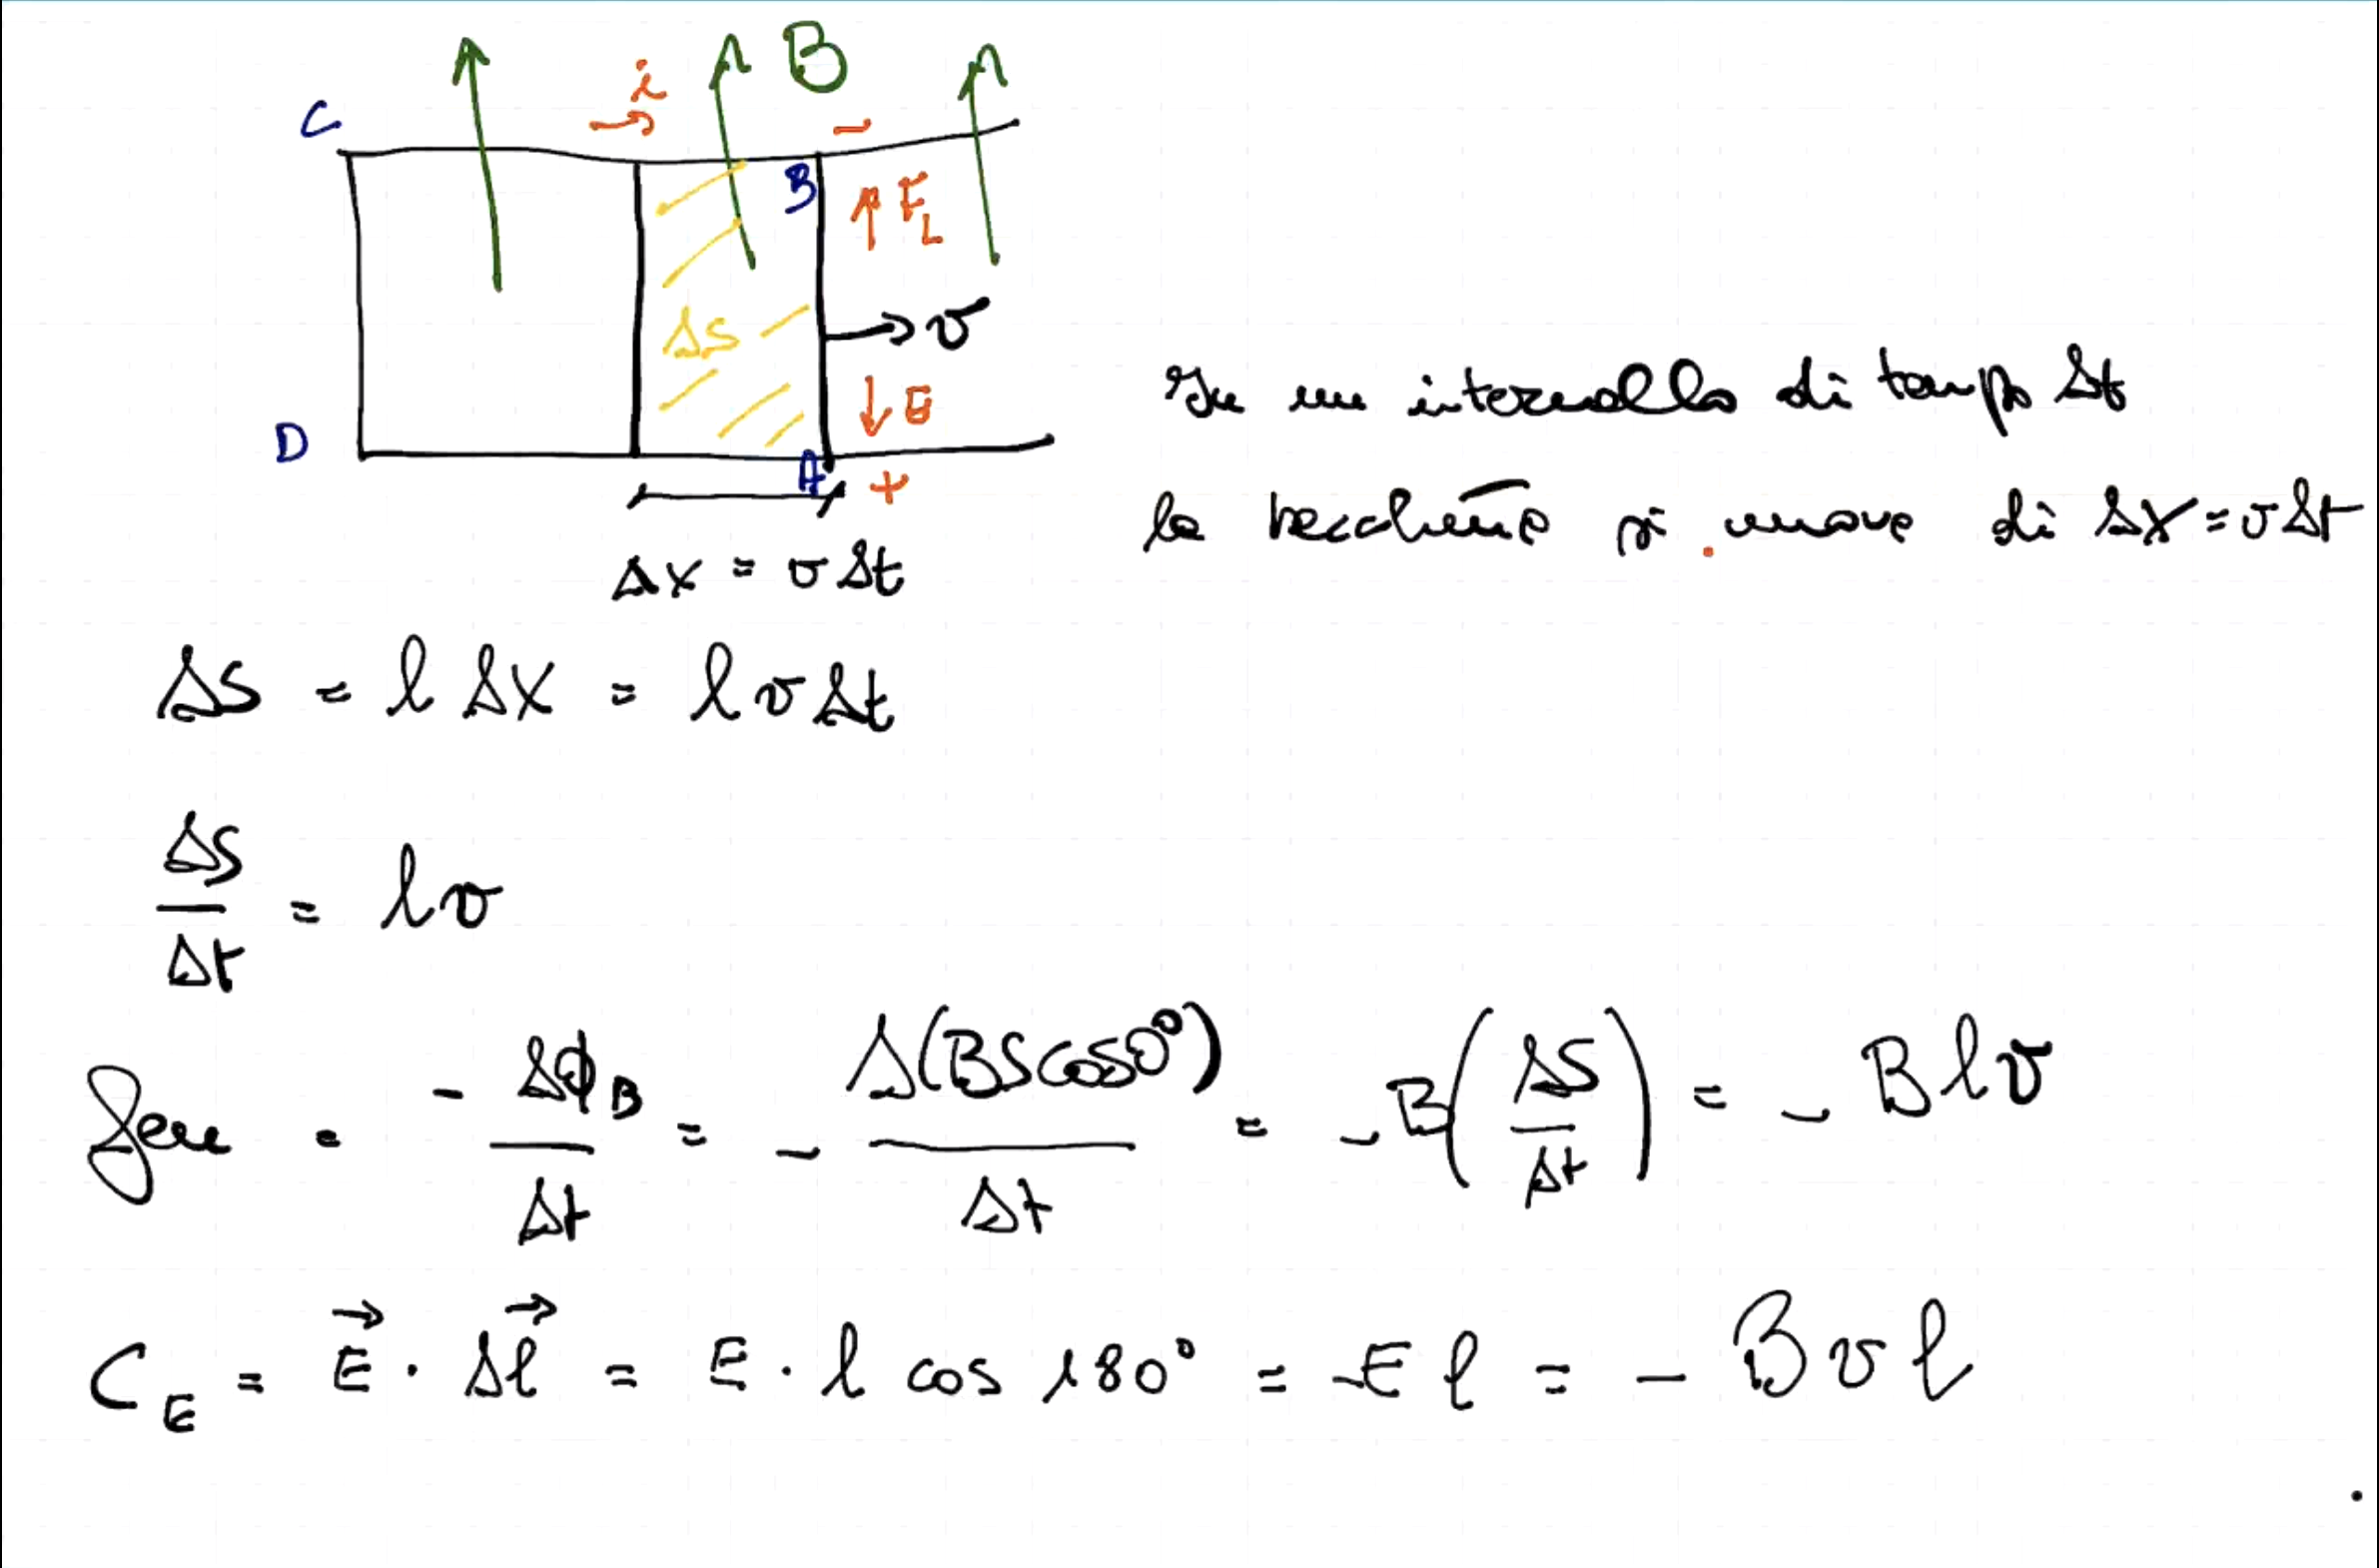 B
i
C
-
B
F_L
ΔS
v
E
D
A
+
In un intervallo di tempo Δt
la bacchetta si muove di Δx = vΔt
Δx = vΔt
ΔS = l Δx = l v Δt
ΔS/Δt = l v
fem = - Δϕ_B/Δt = - Δ(BS cos0°)/Δt = - B(ΔS/Δt) = - B l v
C_E = E⃗ · Δl⃗ = E · l cos 180° = -E l = - B v l